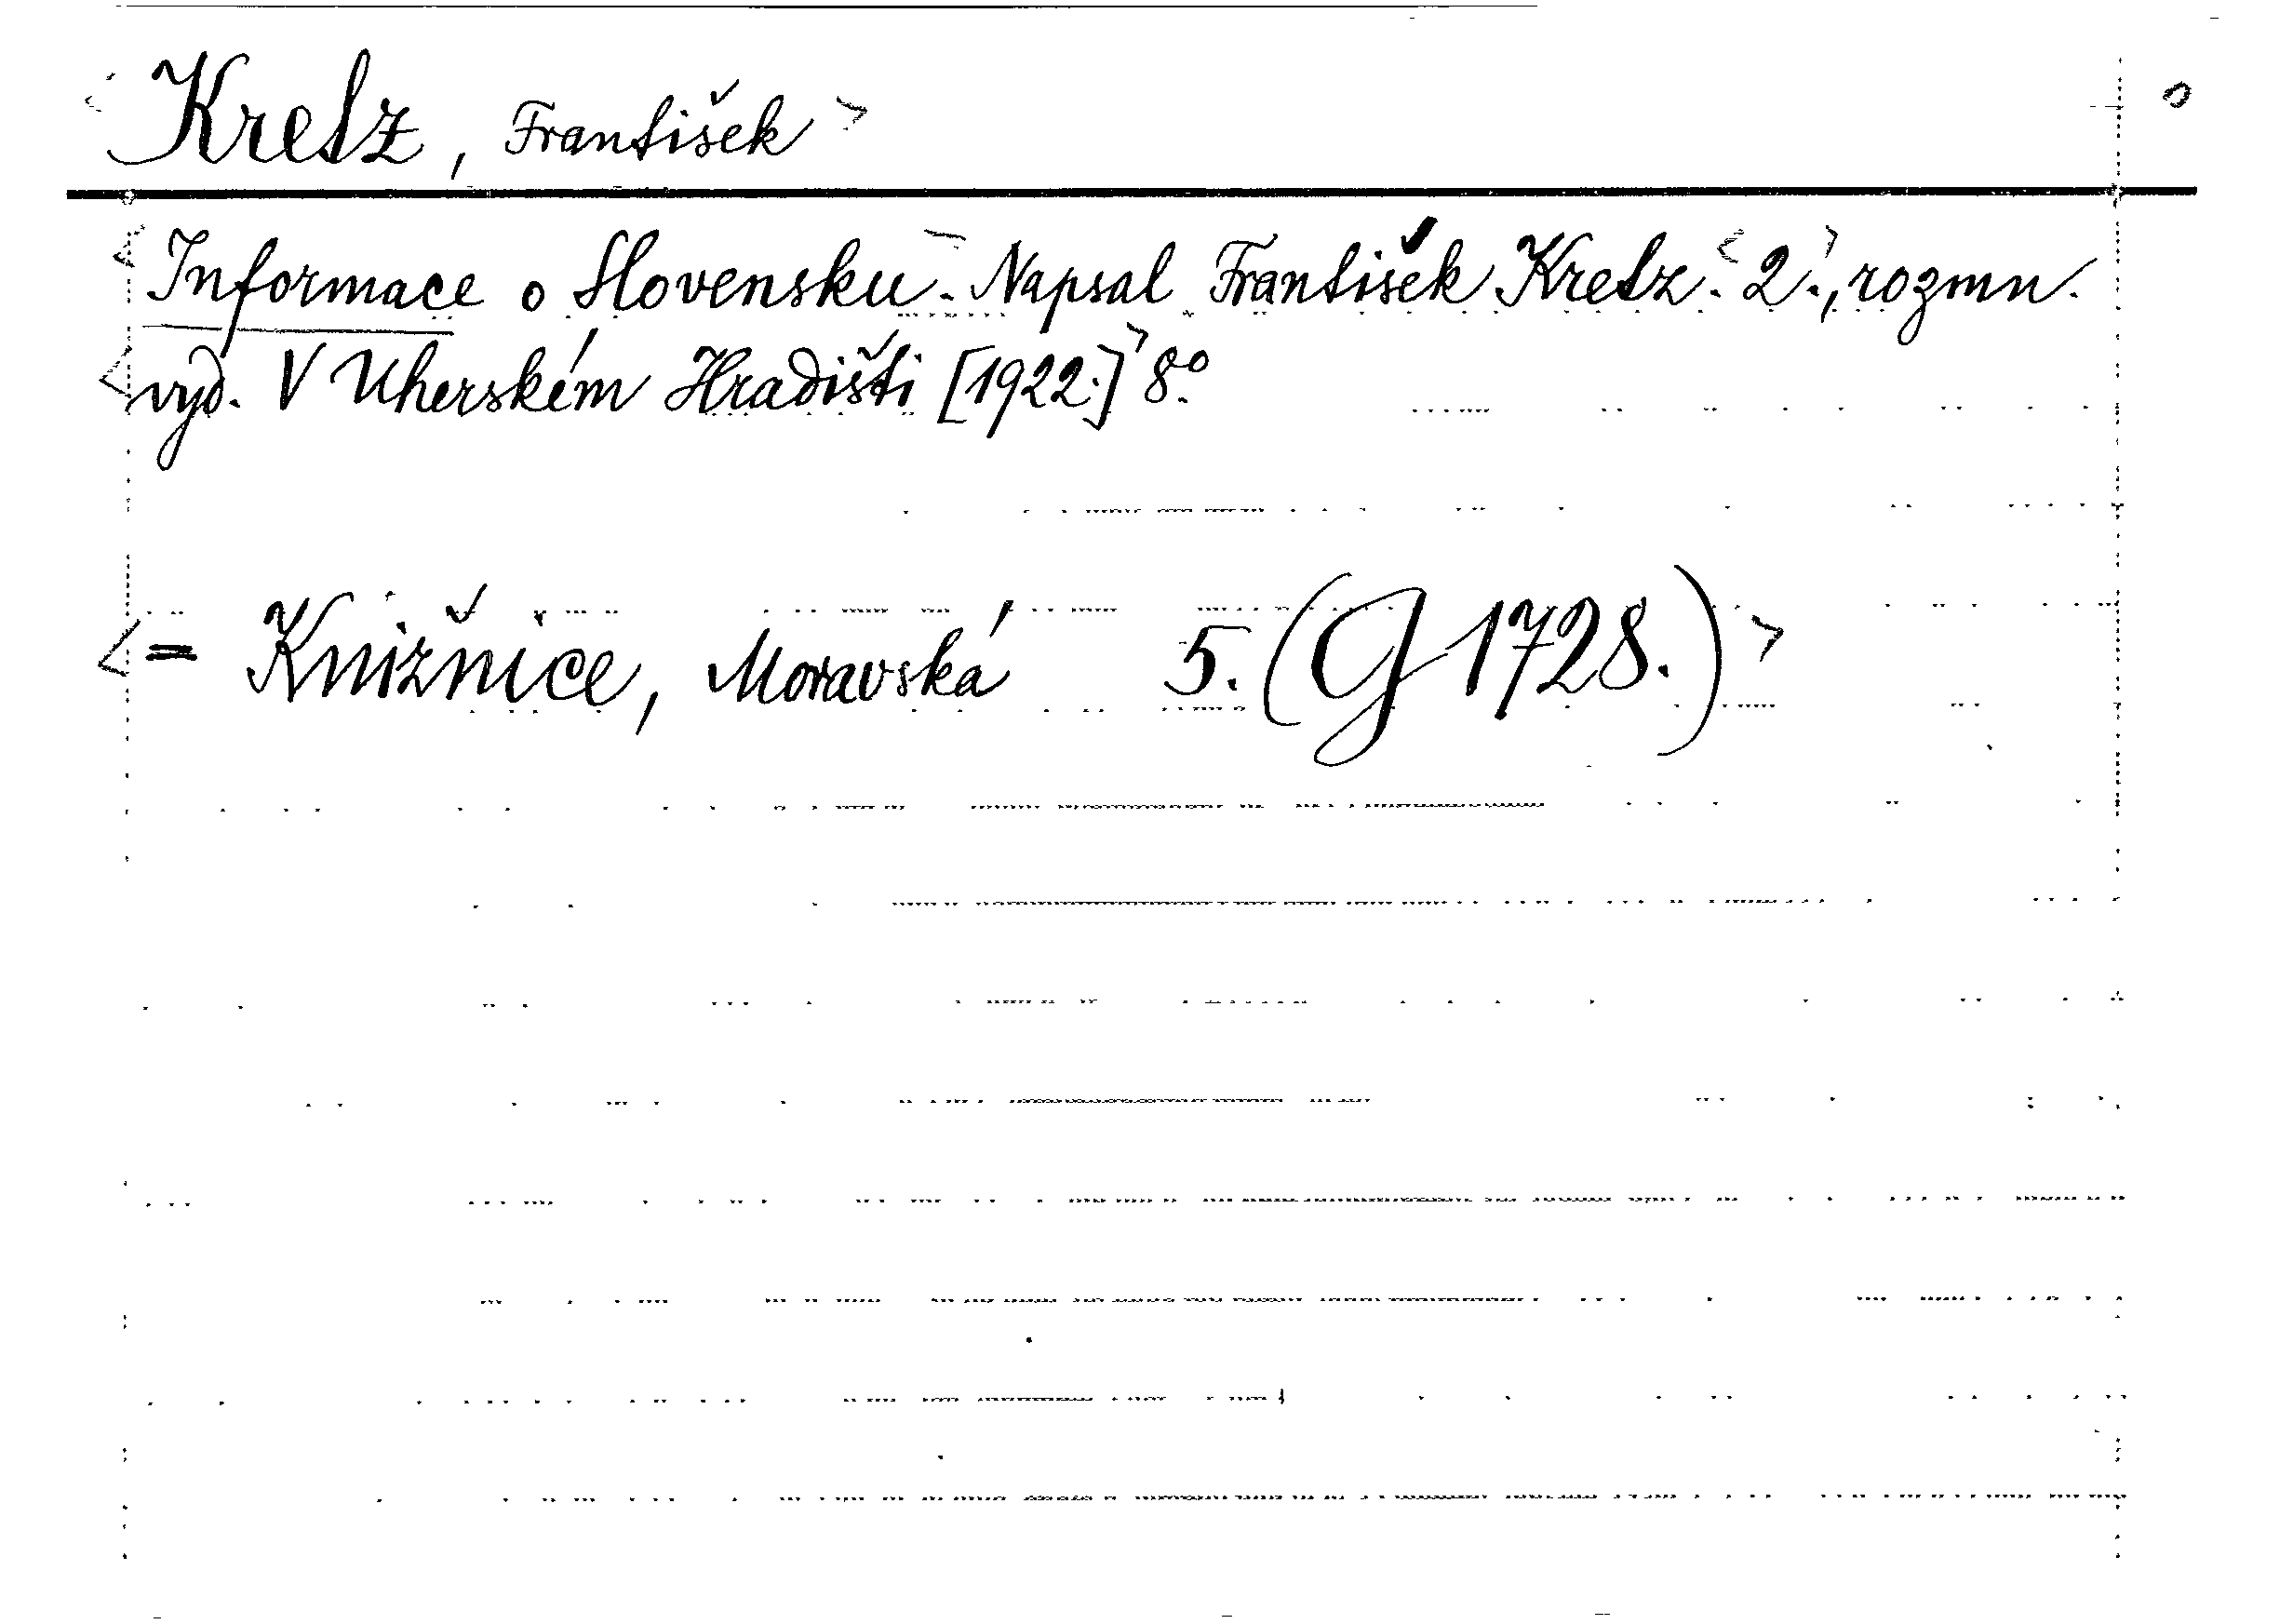 <Kretz, František>
<Informace o Slovensku.> Napsal František Kretz. <2.>, rozmn.
<vyd. V Uherském Hradišti [1922.]> 8°.
<= Knižnice, Moravská 5. (G 1728.)>